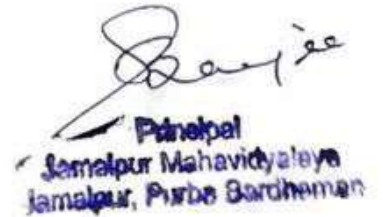 Principal
Jamalpur Mahavidyalaya
Jamalpur, Purba Bardhaman